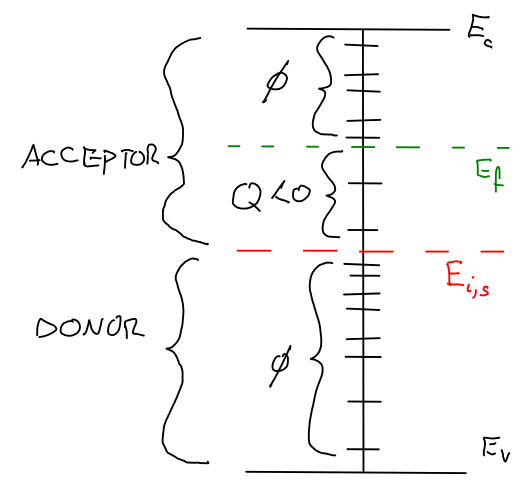 E_c
∅
ACCEPTOR
E_f
Q<0
E_i,s
DONOR
∅
E_v